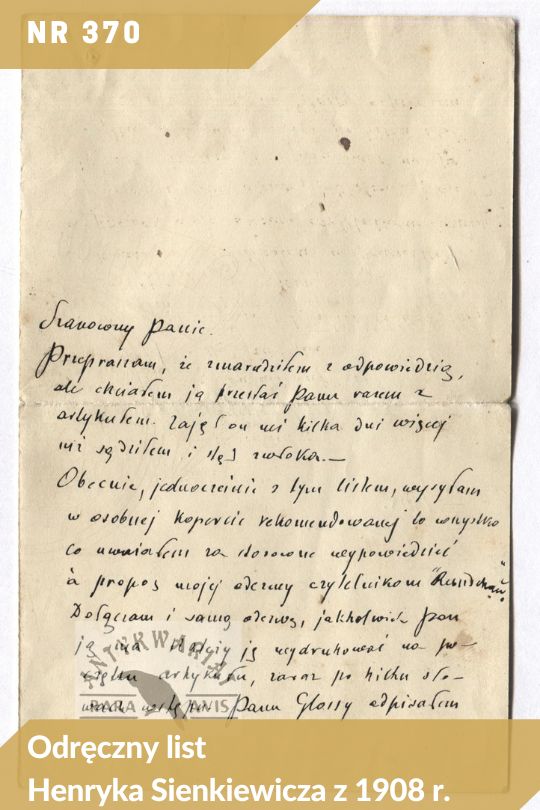 NR 370
Szanowny Panie.
Przepraszam, że zmarudziłem z odpowiedzią,
ale chciałem ją przesłać Panu razem z
artykułem. Zajął on mi kilka dni więcej
niż sądziłem i stąd zwłoka.—
Obecnie, jednocześnie z tym listem, wysyłam
w osobnej kopercie rekomendowanej to wszystko
co uważałem za stosowne wypowiedzieć
à propos mojej odezwy czytelnikom "Rundschau".
Dołączam i samą odezwę, jakkolwiek Pan
ją ma. Należy ją wydrukować na po-
czątku artykułu, zaraz po kilku sło-
wach wstępu. Panu Glossy odpisałem
ANTYKWARIAT
RARA AVIS
Odręczny list
Henryka Sienkiewicza z 1908 r.